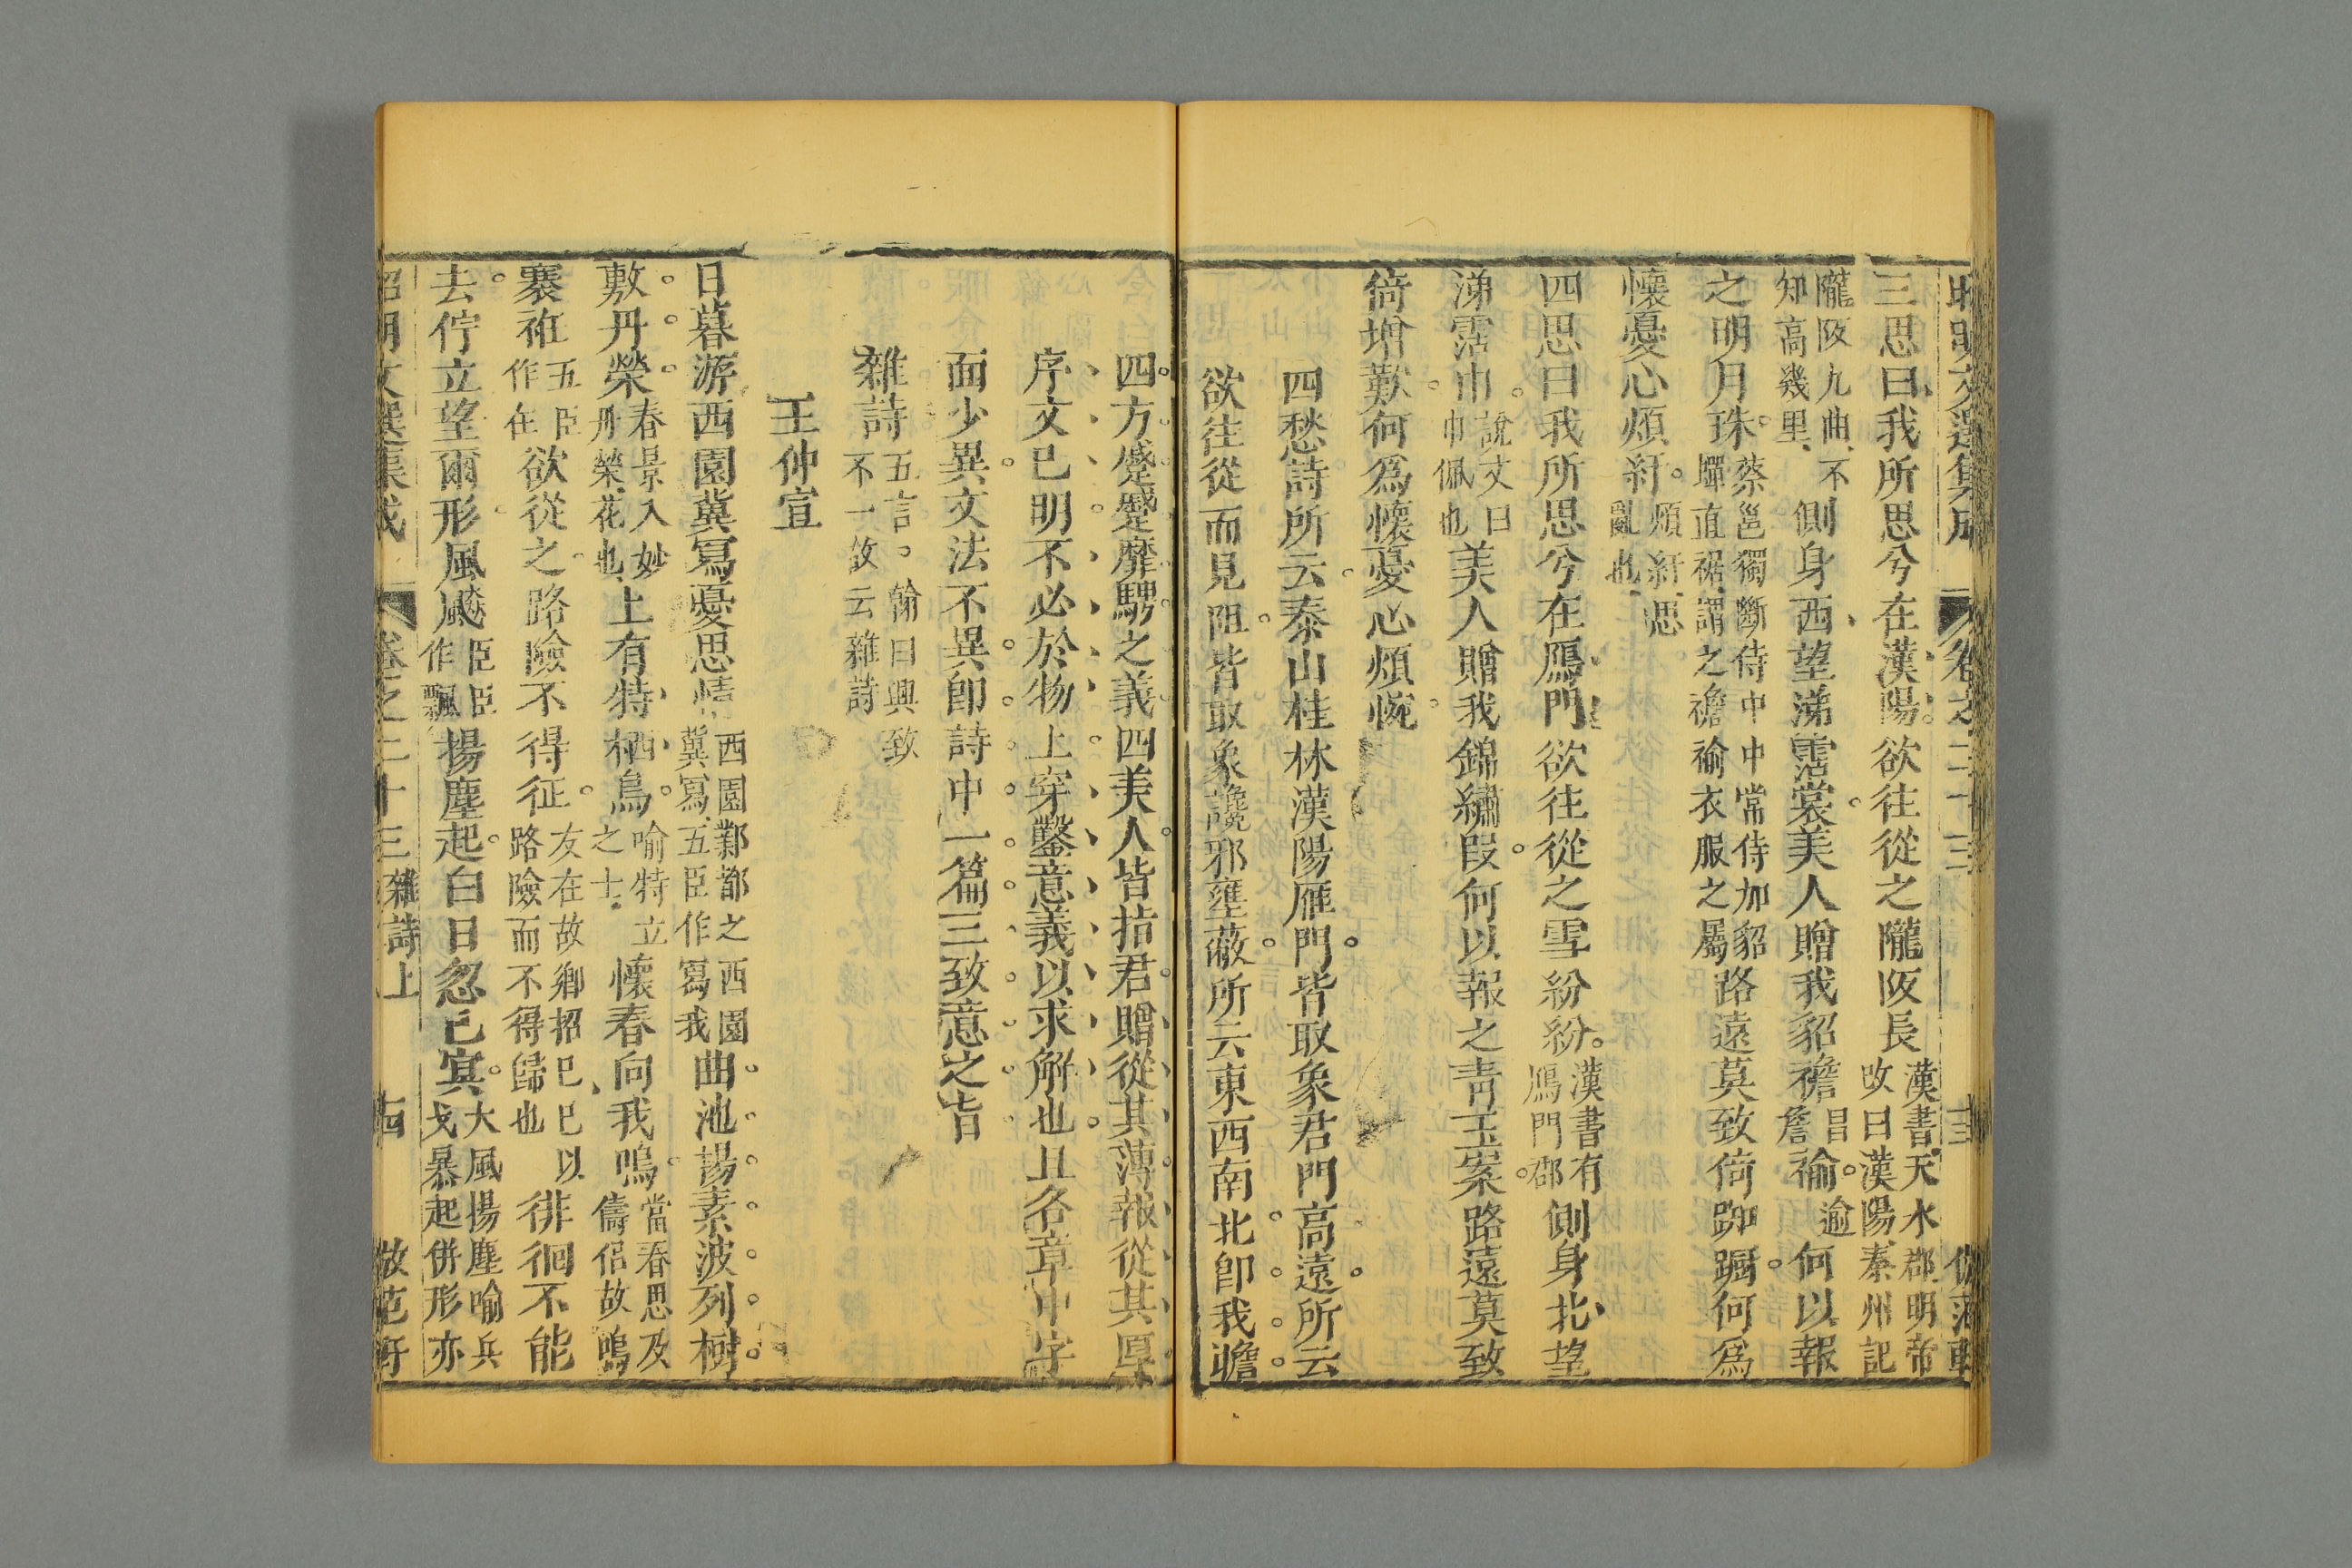 三思曰我所思兮在漢陽欲往從之隴阪長漢書天水郡明帝攺曰漢陽秦州記
隴阪九曲不知高幾里側身西望涕霑裳美人贈我貂襜昌詹褕逾何以報
之明月珠蔡邕獨斷侍中中常侍加貂蟬直裾謂之襜褕衣服之屬路遠莫致倚踟躕何為
懷憂心煩紆煩紆思亂也
四思曰我所思兮在鴈門欲往從之雪紛紛漢書有鴈門郡側身北望
涕霑巾說文曰巾佩也美人贈我錦繡段何以報之青玉案路遠莫致
倚增歎何為懷憂心煩惋
四愁詩所云泰山桂林漢陽雁門皆取象君門高遠所云
欲往從而見阻皆取象讒邪壅蔽所云東西南北卽我瞻
四方蹙蹙靡騁之義四美人皆指君贈從其薄報從其厚
序文已明不必於物上穿鑿意義以求解也且各章中字
面少異文法不異卽詩中一篇三致意之旨
雜詩五言翰曰興致不一故云雜詩
王仲宣
日暮游西園冀寫憂思情西園鄴都之西園冀寫五臣作寫我曲池揚素波列樹
敷丹榮春景入妙丹榮花也上有特栖鳥喻特立之士懷春向我鳴當春思及儔侶故鳴
褰袵五臣作在欲從之路險不得征友在故鄉招已已以路險而不得歸也徘徊不能
去佇立望爾形風飇臣臣作飄揚塵起白日忽已冥大風揚塵喻兵戈暴起併形亦
昭明文選集成 卷之二十三雜詩上